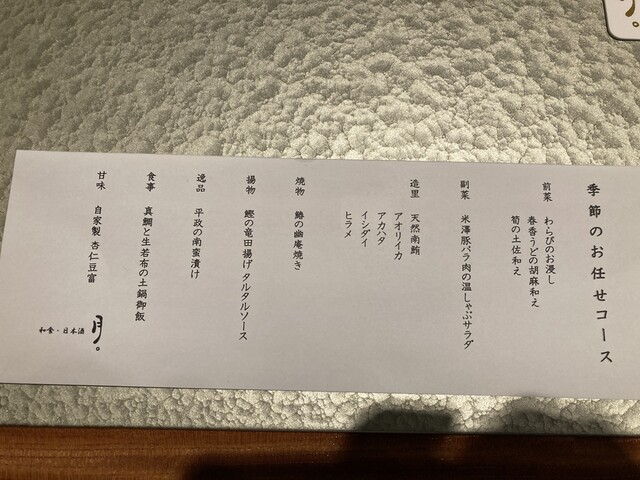 季節のお任せコース
前菜 わらびのお浸し
春香うどの胡麻和え
筍の土佐和え
副菜 米澤豚バラ肉の温しゃぶサラダ
造里 天然南鮪
アオリイカ
アカハタ
イシダイ
ヒラメ
焼物 鰆の幽庵焼き
揚物 鰹の竜田揚げタルタルソース
逸品 平政の南蛮漬け
食事 真鯛と生若布の土鍋御飯
甘味 自家製 杏仁豆富
和食・日本酒 月。